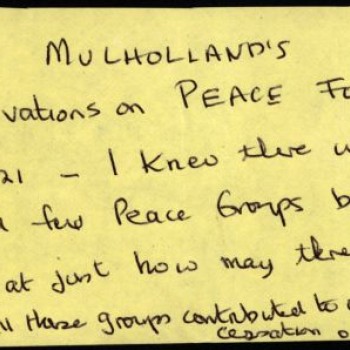 MULHOLLAND'S
vations on PEACE Fo
21 - I knew there w
few Peace Groups b
at just how may thre
these groups contributed to
cessation o